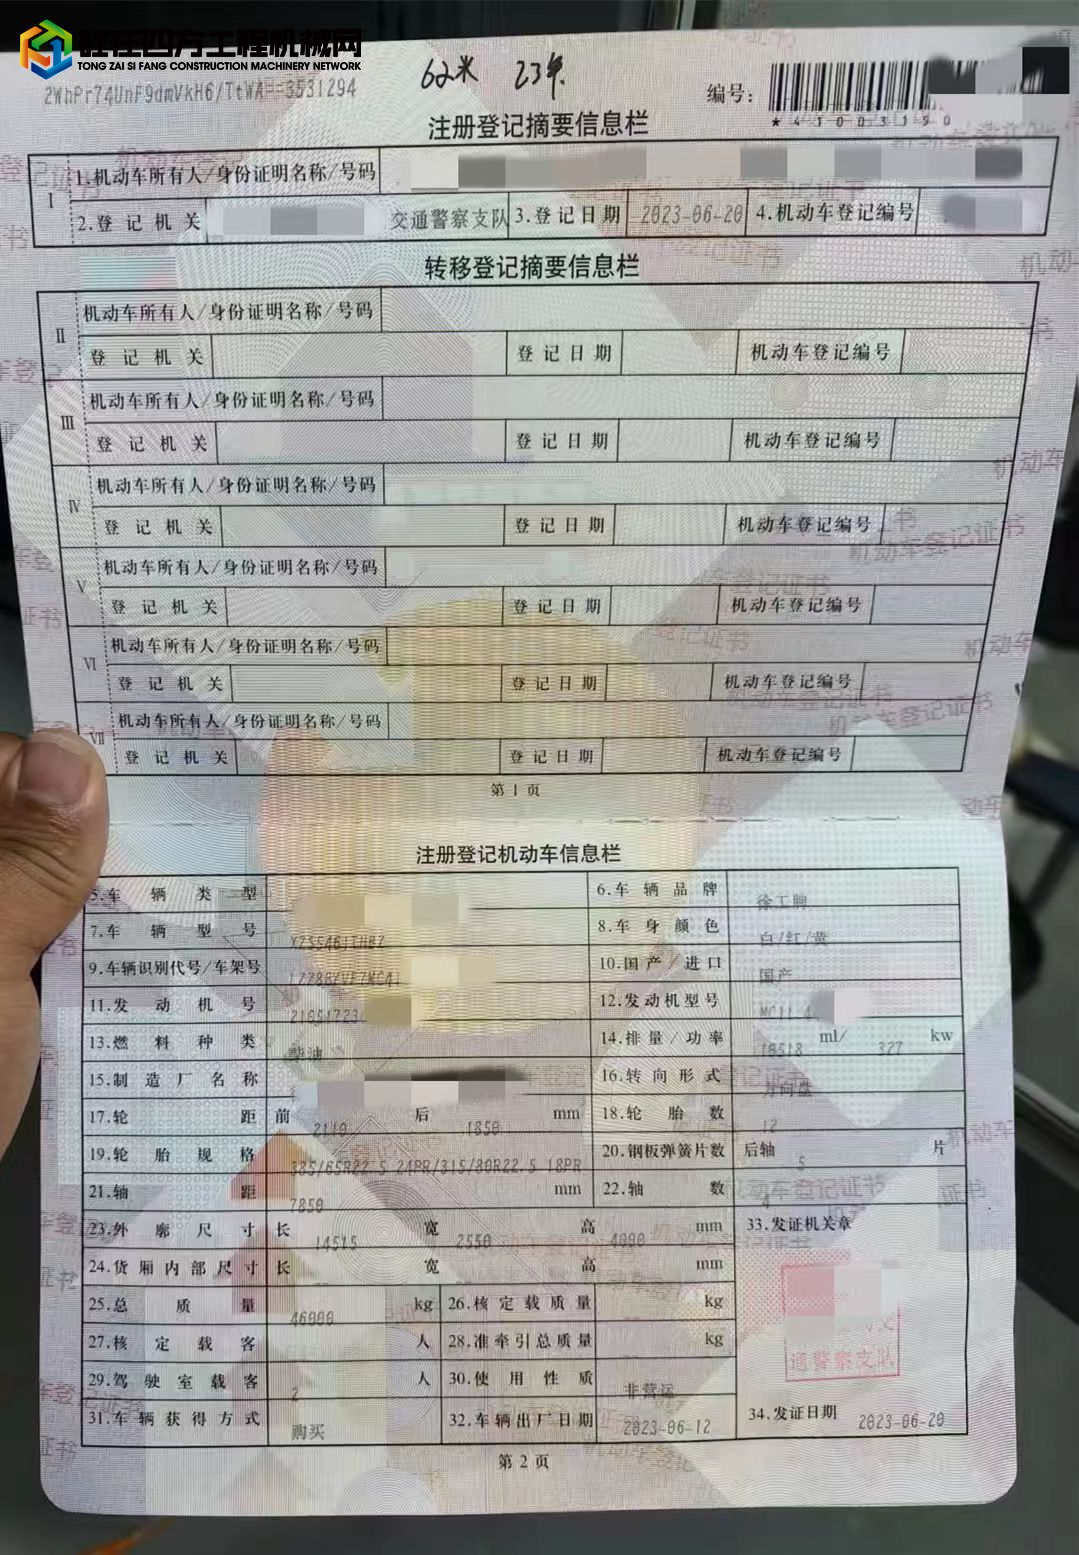 铁在四方工程机械网
TONG ZAI SI FANG CONSTRUCTION MACHINERY NETWORK
2WhPr74UnF9dmVkH6/TtWA==3531294
62米 23年
编号:
*41003190
注册登记摘要信息栏
I 1.机动车所有人/身份证明名称/号码
2.登记机关 交通警察支队 3.登记日期 2023-06-20 4.机动车登记编号
转移登记摘要信息栏
II 机动车所有人/身份证明名称/号码
登记机关 登记日期 机动车登记编号
III 机动车所有人/身份证明名称/号码
登记机关 登记日期 机动车登记编号
IV 机动车所有人/身份证明名称/号码
登记机关 登记日期 机动车登记编号
V 机动车所有人/身份证明名称/号码
登记机关 登记日期 机动车登记编号
VI 机动车所有人/身份证明名称/号码
登记机关 登记日期 机动车登记编号
VII 机动车所有人/身份证明名称/号码
登记机关 登记日期 机动车登记编号
第1页
注册登记机动车信息栏
5.车辆类型 6.车辆品牌 徐工牌
7.车辆型号 XZS5461THBZ 8.车身颜色 白/红/黄
9.车辆识别代号/车架号 10.国产/进口 国产
11.发动机号 12.发动机型号 MC11.4
13.燃料种类 柴油 14.排量/功率 10518 ml/ 327 kw
15.制造厂名称 16.转向形式 方向盘
17.轮距 前 2110 后 1850 mm 18.轮胎数 12
19.轮胎规格 385/65R22.5 24PR/315/80R22.5 18PR 20.钢板弹簧片数 后轴 5 片
21.轴距 7850 mm 22.轴数 4
23.外廓尺寸 长 14515 宽 2550 高 4000 mm 33.发证机关章
24.货厢内部尺寸 长 宽 高 mm
25.总质量 46000 kg 26.核定载质量 kg
27.核定载客 人 28.准牵引总质量 kg
通警察支队
29.驾驶室载客 2 人 30.使用性质 非营运
31.车辆获得方式 购买 32.车辆出厂日期 2023-06-12 34.发证日期 2023-06-20
第2页